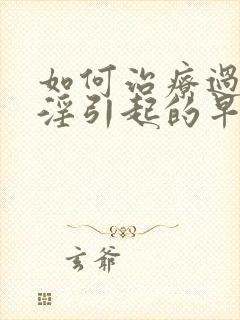 如何治療過
淫引起的早
玄爺